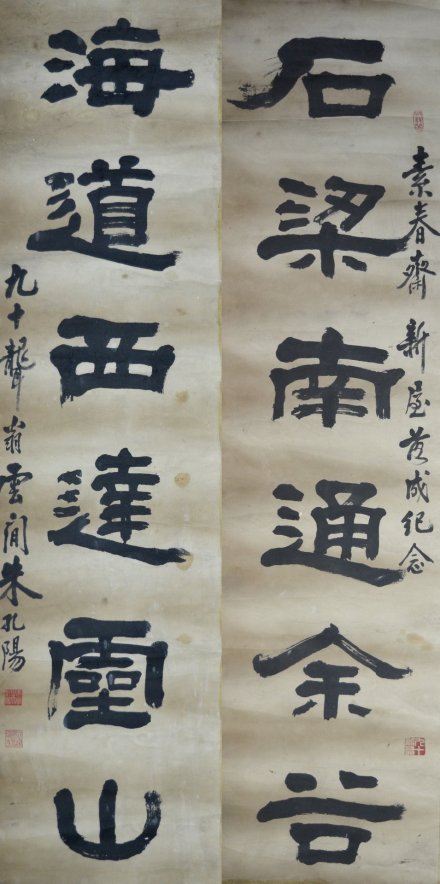 石梁南通余谷
素春齋新屋落成紀念
海道西達靈山
九十聾翁雲間朱孔陽